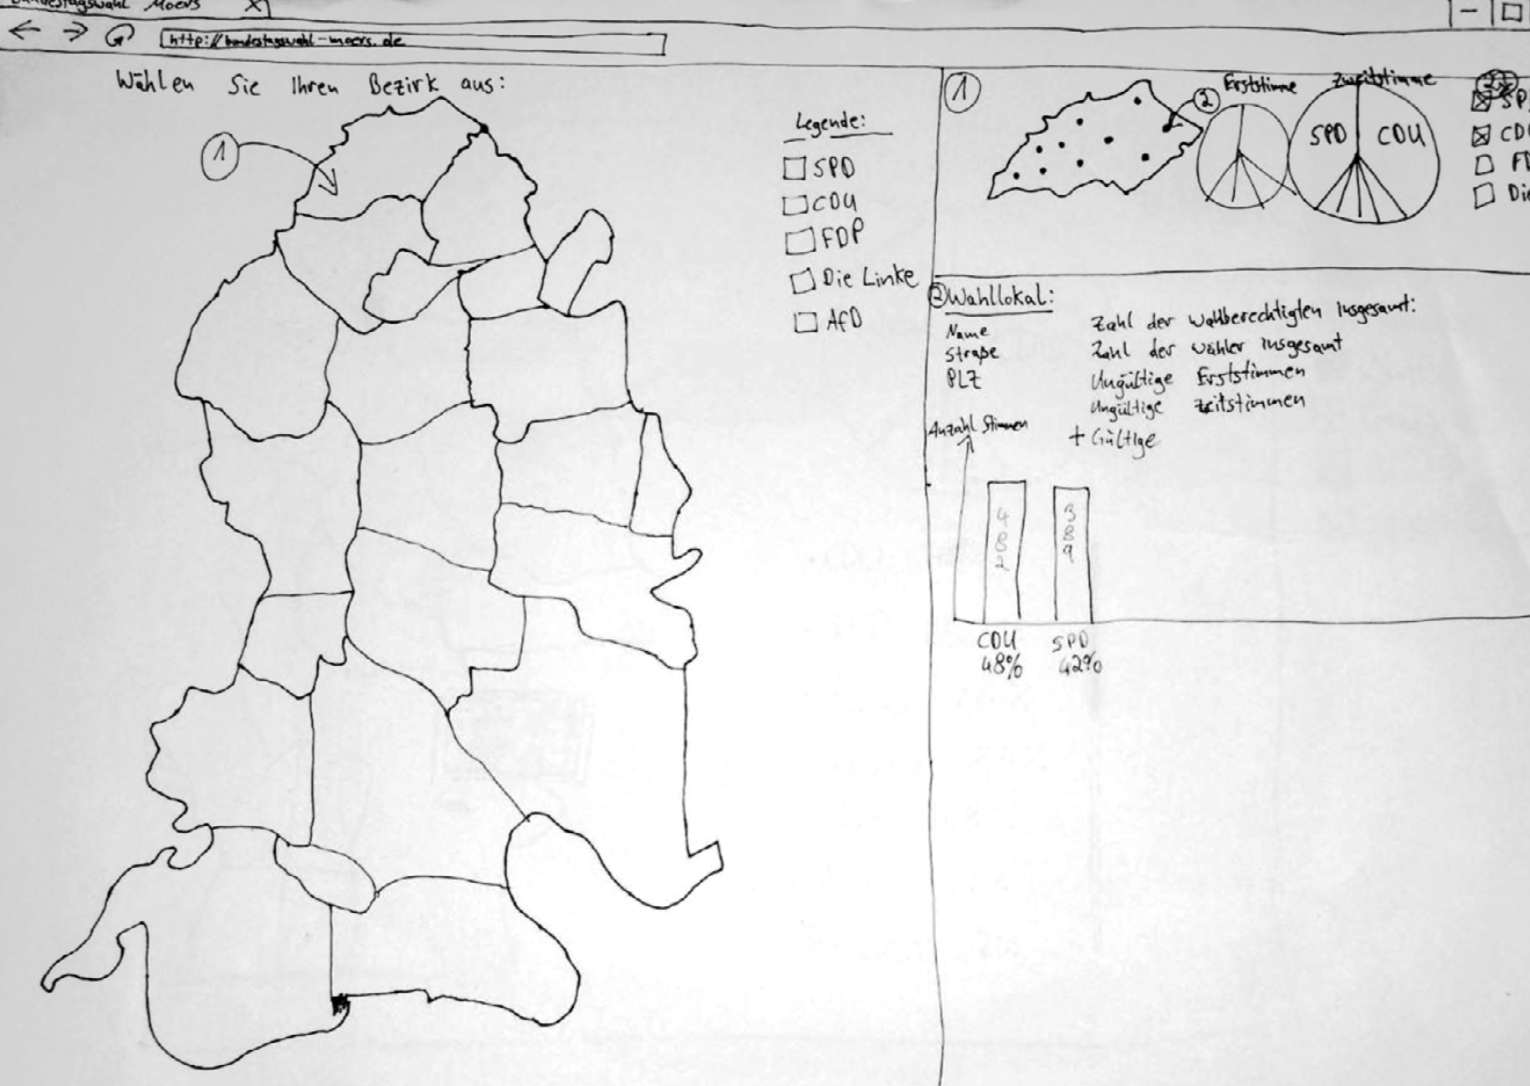 Bundestagswahl Moers X
http://bundestagswahl-moers.de
Wählen Sie Ihren Bezirk aus:
1
Legende:
SPD
CDU
FDP
Die Linke
AfD
1
2
Erststimme
Zweitstimme
SPD CDU
SP
CDU
FD
Die
2 Wahllokal:
Name
Straße
PLZ
Zahl der Wahlberechtigten insgesamt:
Zahl der Wähler insgesamt
Ungültige Erststimmen
Ungültige Zeitstimmen
+ Gültige
Anzahl Stimmen
482
389
CDU
48%
SPD
42%